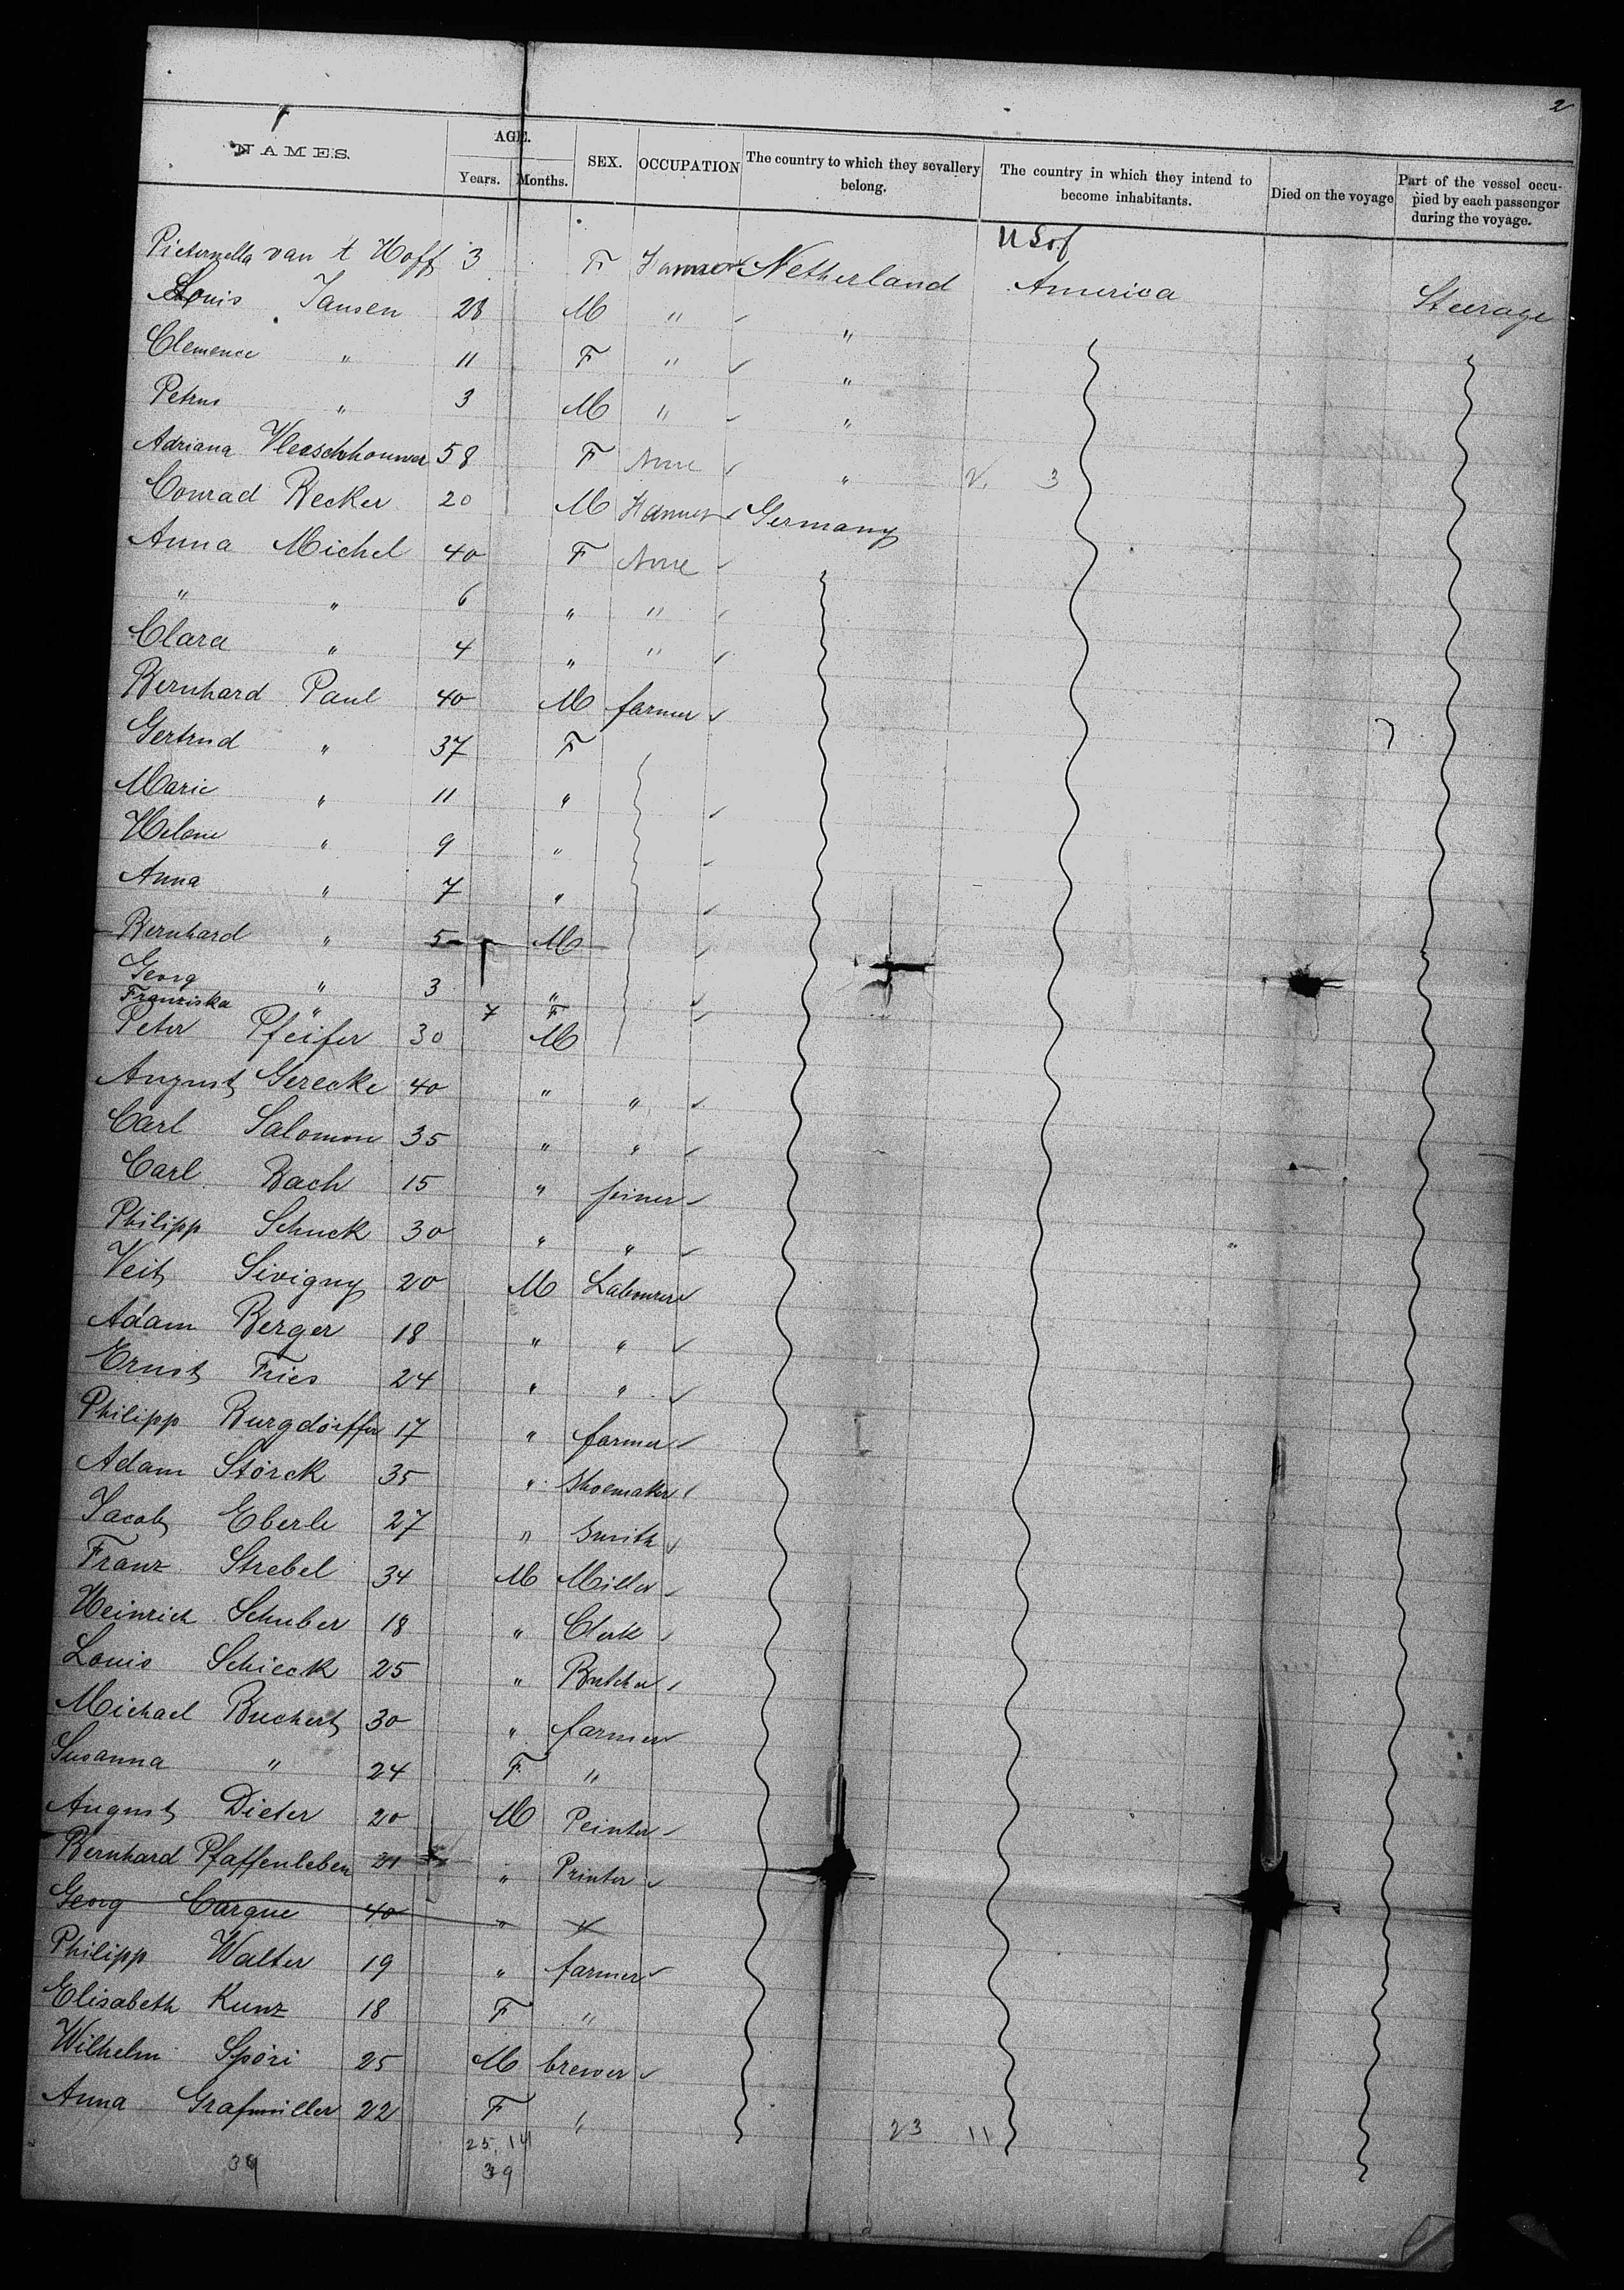 2
NAMES. AGE. SEX. OCCUPATION The country to which they sevallery belong. The country in which they intend to become inhabitants. Died on the voyage Part of the vessel occupied by each passenger during the voyage.
Years. Months.
Pieternella van t Hoff 3 F Farmer Netherland U S of America Steerage
Louis Jansen 28 M " "
Clemence " 11 F " "
Petrus " 3 M " "
Adriana Vleeschhouwer 58 F None " 2. 3
Conrad Becker 20 M Farmer Germany
Anna Michel 40 F None
" " 6 " "
Clara " 4 " "
Bernhard Paul 40 M farmer
Gertrud " 37 F
Marie " 11 "
Helene " 9 "
Anna " 7 "
Bernhard " 5 M
Georg " 3 "
Franziska " 7 F
Peter Pfeifer 30 M
August Gerecke 40 " "
Carl Salomon 35 " "
Carl Bach 15 " joiner
Philipp Schuck 30 " "
Veit Sivigny 20 M Labourer
Adam Berger 18 " "
Ernst Fries 24 " "
Philipp Burgdörffer 17 " farmer
Adam Störck 35 " Shoemaker
Jacob Eberle 27 " Smith
Franz Strebel 34 M Miller
Heinrich Schuber 18 " Clerk
Louis Schieck 25 " Butcher
Michael Buchert 30 " farmer
Susanna " 24 F "
August Dieter 20 M Peinter
Bernhard Pfaffenleben 21 " Printer
Georg Cargue 40 " "
Philipp Walter 19 " farmer
Elisabeth Kunz 18 F "
Wilhelm Spöri 25 M brewer
Anna Grafmiller 22 F "
23 11
25. 14
39 39